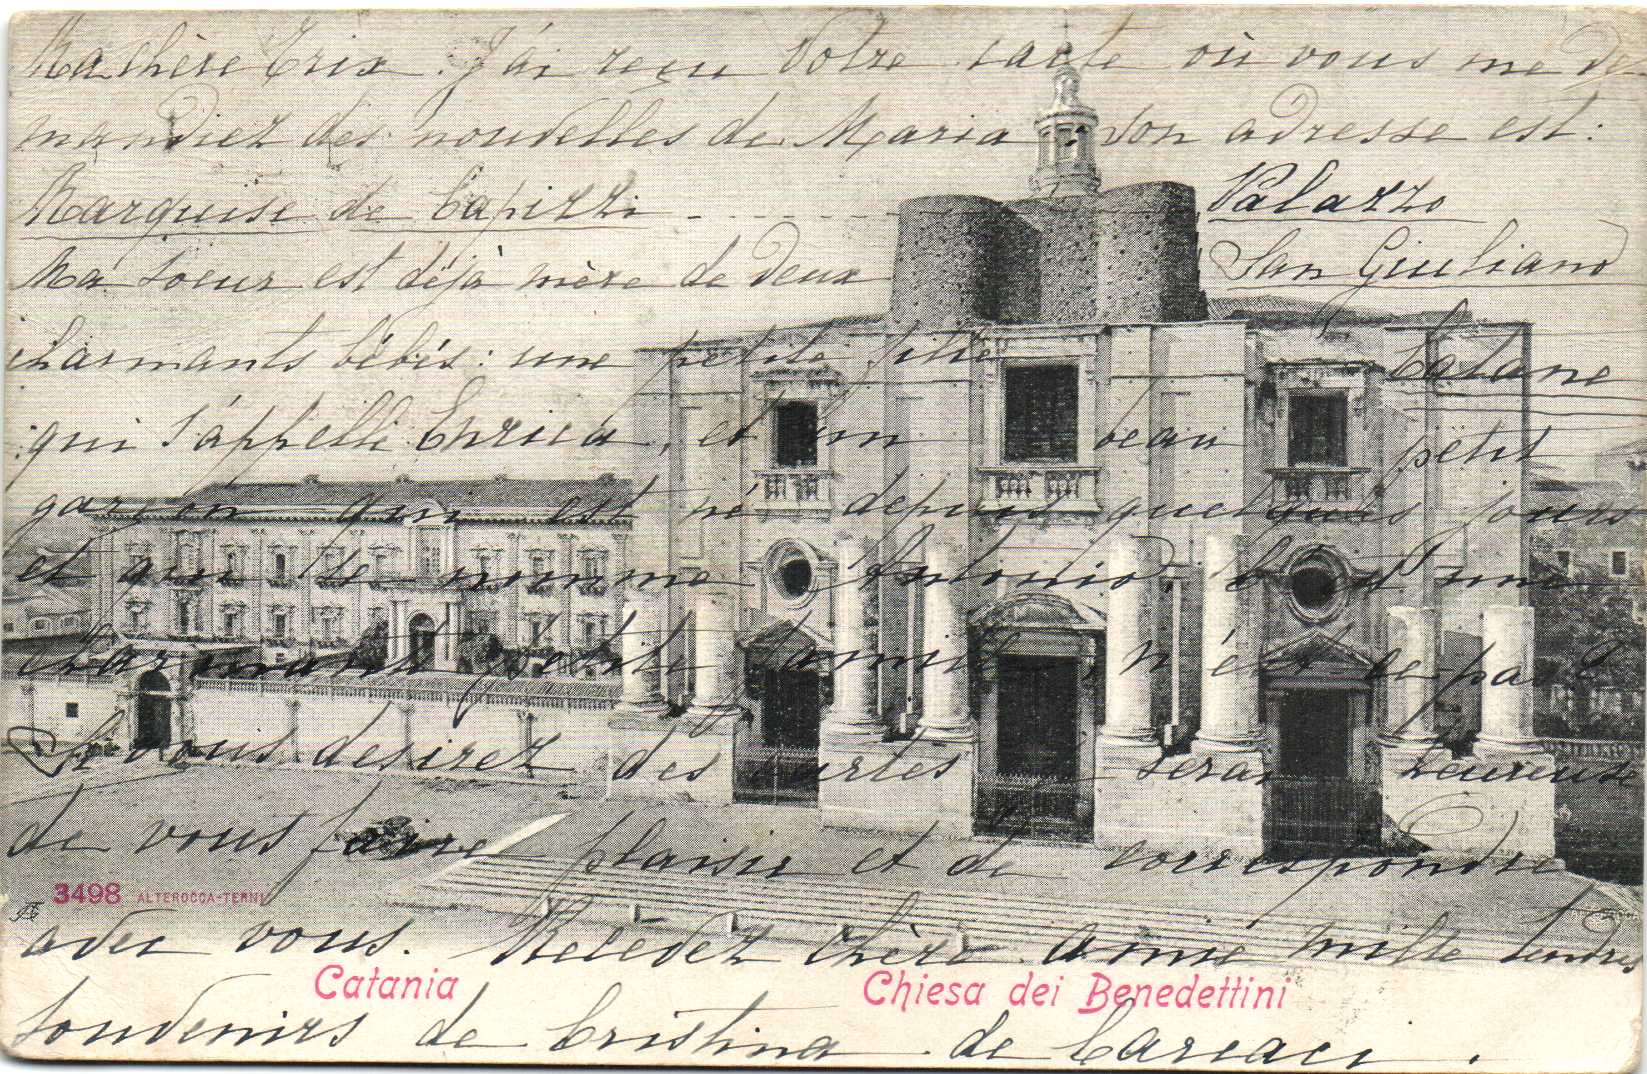 Ma chère Trix. J'ai reçu votre carte où vous me de
mandiez des nouvelles de Maria: son adresse est:
Marquise de Capizzi - - - - - Palazzo
San Giuliano
Catane
Ma soeur est déjà mère de deux
charmants bébés: une petite fille
qui s'appelle Enrica, et un beau petit
garçon qui est né depuis quelques jours
et qui se nomme Antonio, c'est une
charmante petite famille, n'est ce pas?
Si vous desirez des cartes je serai heureuse
de vous faire plaisir et de correspondre
avec vous. Recevez chère amie mille tendres
souvenirs de Cristina de Carcaci.
3498 ALTEROCCA-TERNI
Catania Chiesa dei Benedettini